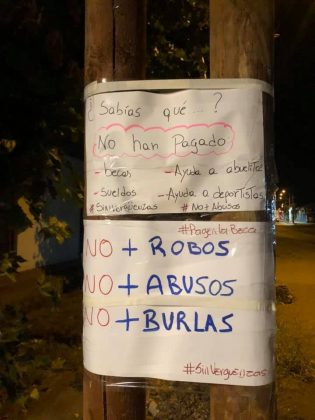 ¿ Sabías qué ... ?
No han Pagado
- becas - Ayuda a abuelitas
- Sueldos - Ayuda a deportistas
#SinVergüenzas # No+Abusos
#PagenlaBeca
NO + ROBOS
NO + ABUSOS
NO + BURLAS
#SinVerguenzas